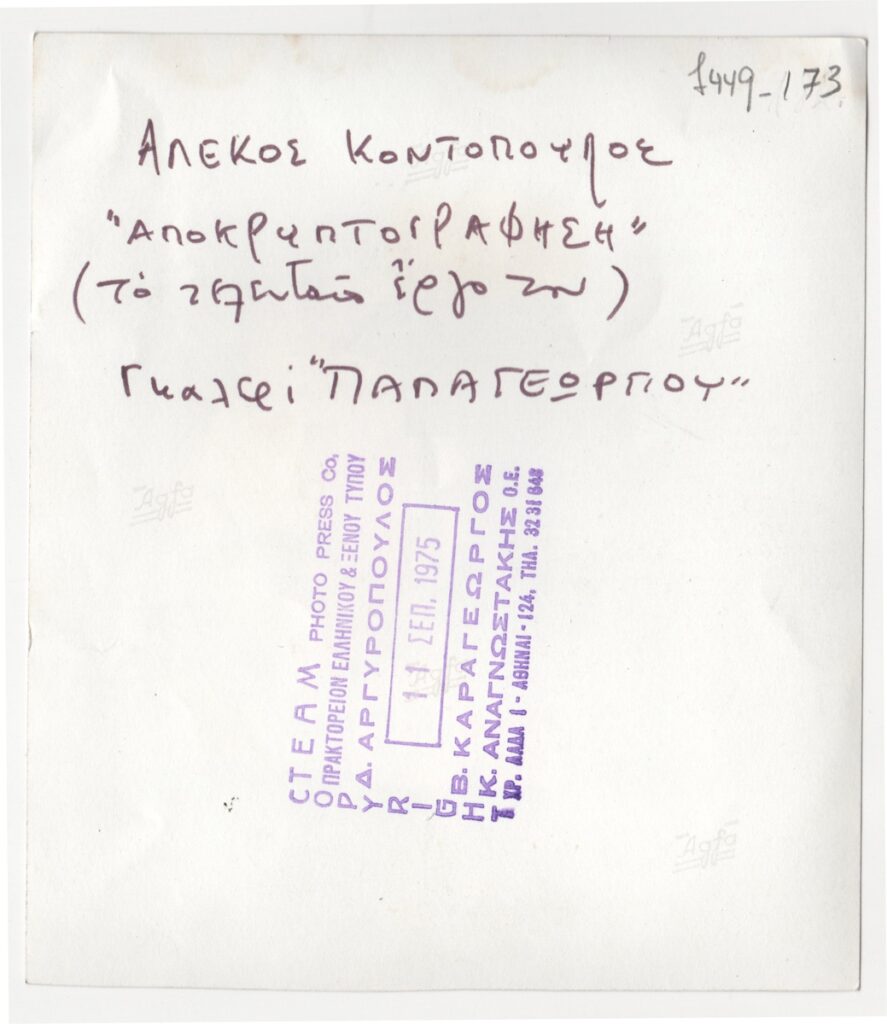 f449-173
ΑΛΕΚΟΣ ΚΟΝΤΟΠΟΥΛΟΣ
"ΑΠΟΚΡΥΠΤΟΓΡΑΦΗΣΗ"
(τό τελευταίο ἔργο του)
Γκαλερί "ΠΑΠΑΓΕΩΡΓΙΟΥ"
COPYRIGHT
TEAM PHOTO PRESS Co,
ΠΡΑΚΤΟΡΕΙΟΝ ΕΛΛΗΝΙΚΟΥ & ΞΕΝΟΥ ΤΥΠΟΥ
Δ. ΑΡΓΥΡΟΠΟΥΛΟΣ
11 ΣΕΠ. 1975
Β. ΚΑΡΑΓΕΩΡΓΟΣ
Κ. ΑΝΑΓΝΩΣΤΑΚΗΣ Ο.Ε.
ΧΡ. ΛΑΔΑ 1 - ΑΘΗΝΑΙ - 124, ΤΗΛ. 32 31 848
Agfa
Agfa
Agfa
Agfa
Agfa